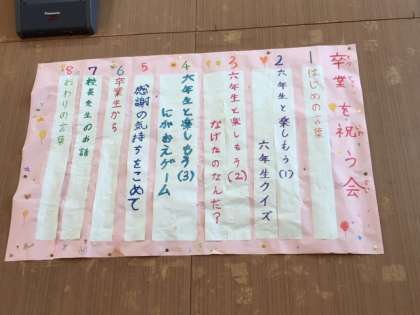 卒業を祝う会
1 はじめの言葉
2 六年生と楽しもう(1)
六年生クイズ
3 六年生と楽しもう(2)
なげたのなんだ?
4 六年生と楽しもう(3)
にがおえゲーム
5 感謝の気持ちをこめて
6 卒業生から
7 校長先生のお話
8 おわりの言葉
Panasonic